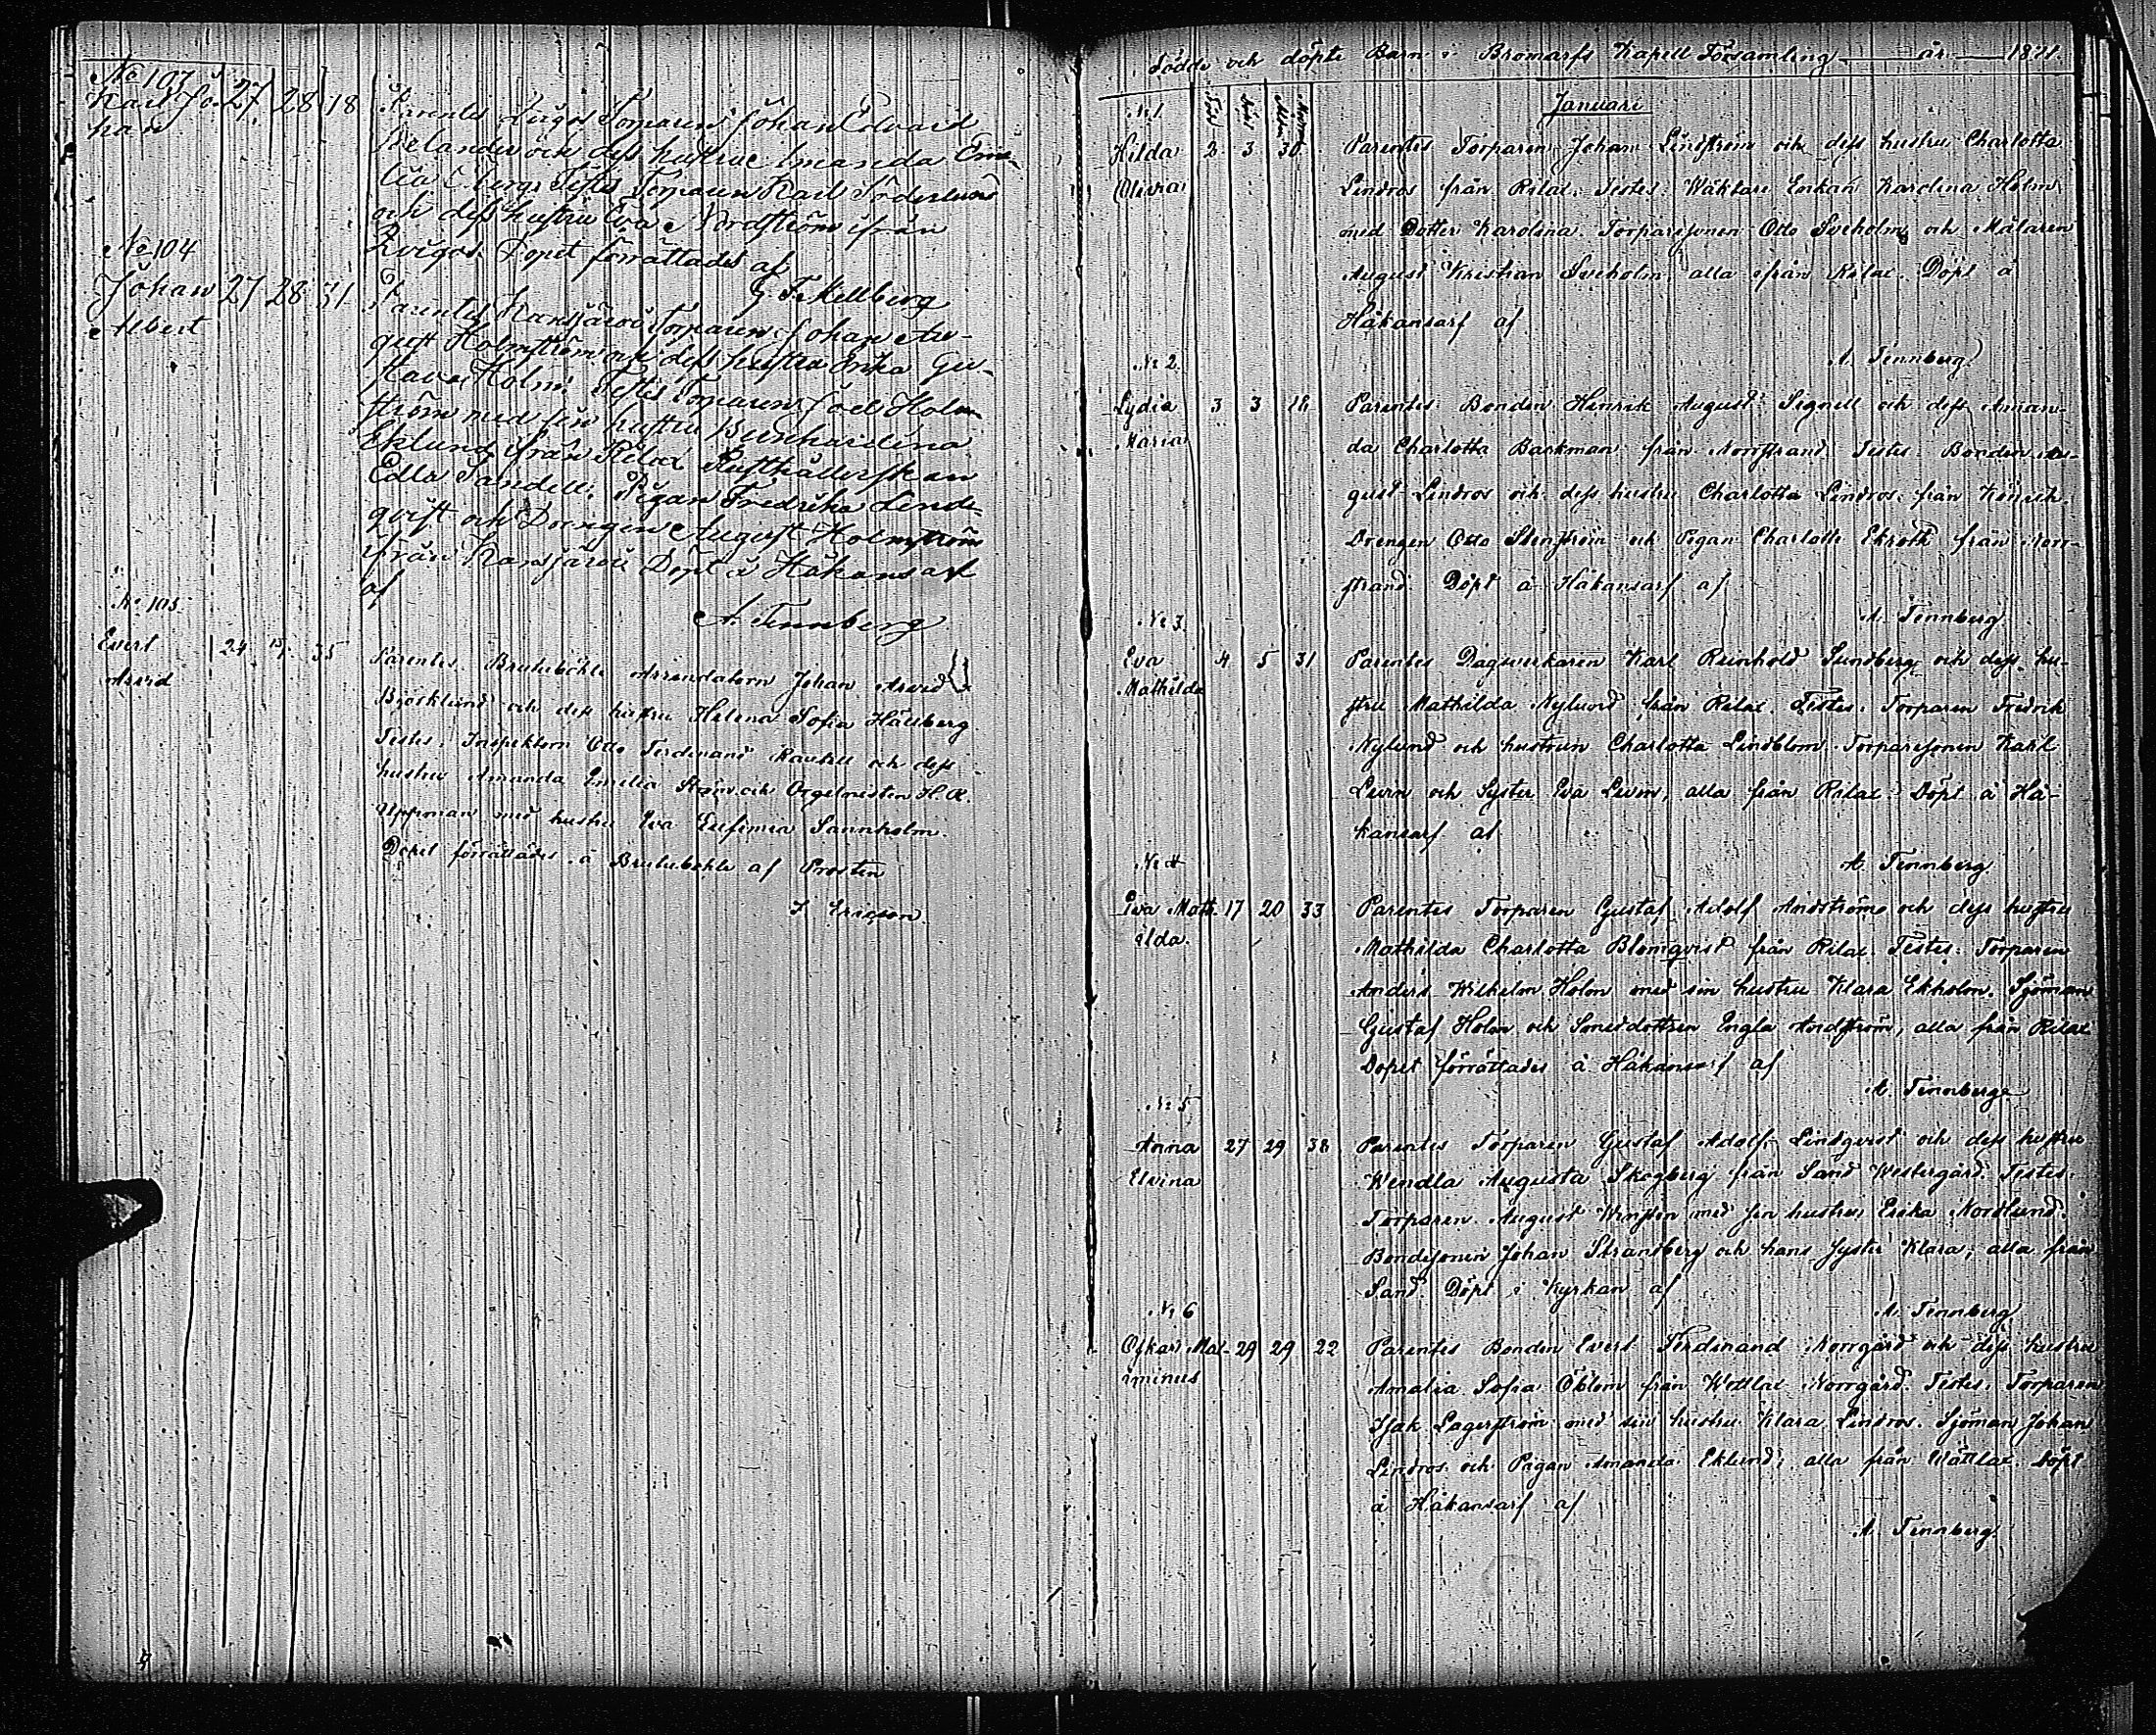 No 107
Karl Jo- 27 28 18
han
Parentes Torparen Johan Edvard
Welander och dess hustru Amanda Emi-
lia Testes Torparen Karl Söderlund
och dess hustru Eva Nordström ifrån
Dopet förrättades af
G. F. Kellberg
No 104
Johan 27 28 31
Albert
Parentes Kansjärvi Torparen Johan Au-
gust Holmström och dess hustru Erika Gu-
stava Holm. Testes Torparen Joel Holm-
ström med sin hustru Bernhardina
Eklund, från Rilax Rusthållerskan
Edla Sandell, Pigan Fredrika Lind-
qvist och Drengen August Holmström
ifrån Kansjärvi Döpt å Håkansarf
af
A. Tennberg
No 105
Evert 24 35
Arvid
Parentes. Brukuböhle Arrendatorn Johan Arvid
Björklund och dess hustru Helena Sofia Hällberg
Testes. Inspektorn Otto Ferdinand och dess
hustru Amanda Emelia Ström och Orgelnisten H. R.
Uppman med hustru Eva Eufemia Sannholm.
Dopet förrättades å af Prosten
J Ericson
Födde och döpte Barn i Bromarfs Kapell Församling år 1871.
Januari
No 1
Hilda 2 3 30 Parentes Torparen Johan Lindström och dess hustru Charlotta
Olivia Lindros från Rilax. Testes: Wäktare Enkan Karolina Holm
med Dotter Karolina. Torparesonen Otto Sveholm och Målaren
August Kristian Sveholm, alla från Rilax. Döpt å
Håkansarf af
A. Tennberg
No 2.
Lydia 3 3 18 Parentes Bonden Henrik August Signell och dess Aman-
Maria da Charlotta Backman från Norrstrand Testes: Bonden Au-
gust Lindros och dess hustru Charlotta Lindros från
Drengen Otto Stenström och Pigan Charlotta Ekroth från Norr-
strand. Döpt å Håkansarf af
A. Tennberg
No 3.
Eva 4 5 31 Parentes Dagsverkaren Karl Reinhold Sundberg och dess hu-
Mathilda stru Mathilda Nylund från Rilax. Testes: Torparen Fredrik
Nylund och hustrun Charlotta Lindblom. Torparesonen Karl
Levin och Syster Eva Levin, alla från Rilax Döpt å Hå-
kansarf af
A. Tennberg
No 4
Eva Math- 17 20 33 Parentes Torparen Gustaf Adolf Andström och dess hustru
ilda. Mathilda Charlotta Blomqvist från Rilax. Testes: Torparen
Anders Wilhelm Holm med sin hustru Klara Ekholm. Sjöman
Gustaf Holm och Smeddottren Engla Andström, alla från Rilax
Dopet förrättades å Håkansarf af
A. Tennberg
No 5
Anna 27 29 38 Parentes Torparen Gustaf Adolf Lindqvist och dess hustru
Elvina Wendla Augusta Skogberg från Sand Westergård. Testes:
Torparen August Winsten med sin hustru Erika Nordlund.
Bondesonen Johan Strandberg och hans Syster Klara, alla från
Sand. Döpt i Kyrkan af
A. Tennberg
No 6
Oskar Max- 29 29 22 Parentes Bonden Evert Ferdinand Norrgård och dess hustru
iminus Amalia Sofia Öblom från Wättlax Norrgård. Testes: Torparen
Isak Lagerström med sin hustru Klara Lindros. Sjöman Johan
Lindros och Pigan Amanda Eklund, alla från Wättlax. Döpt
å Håkansarf af
A. Tennberg